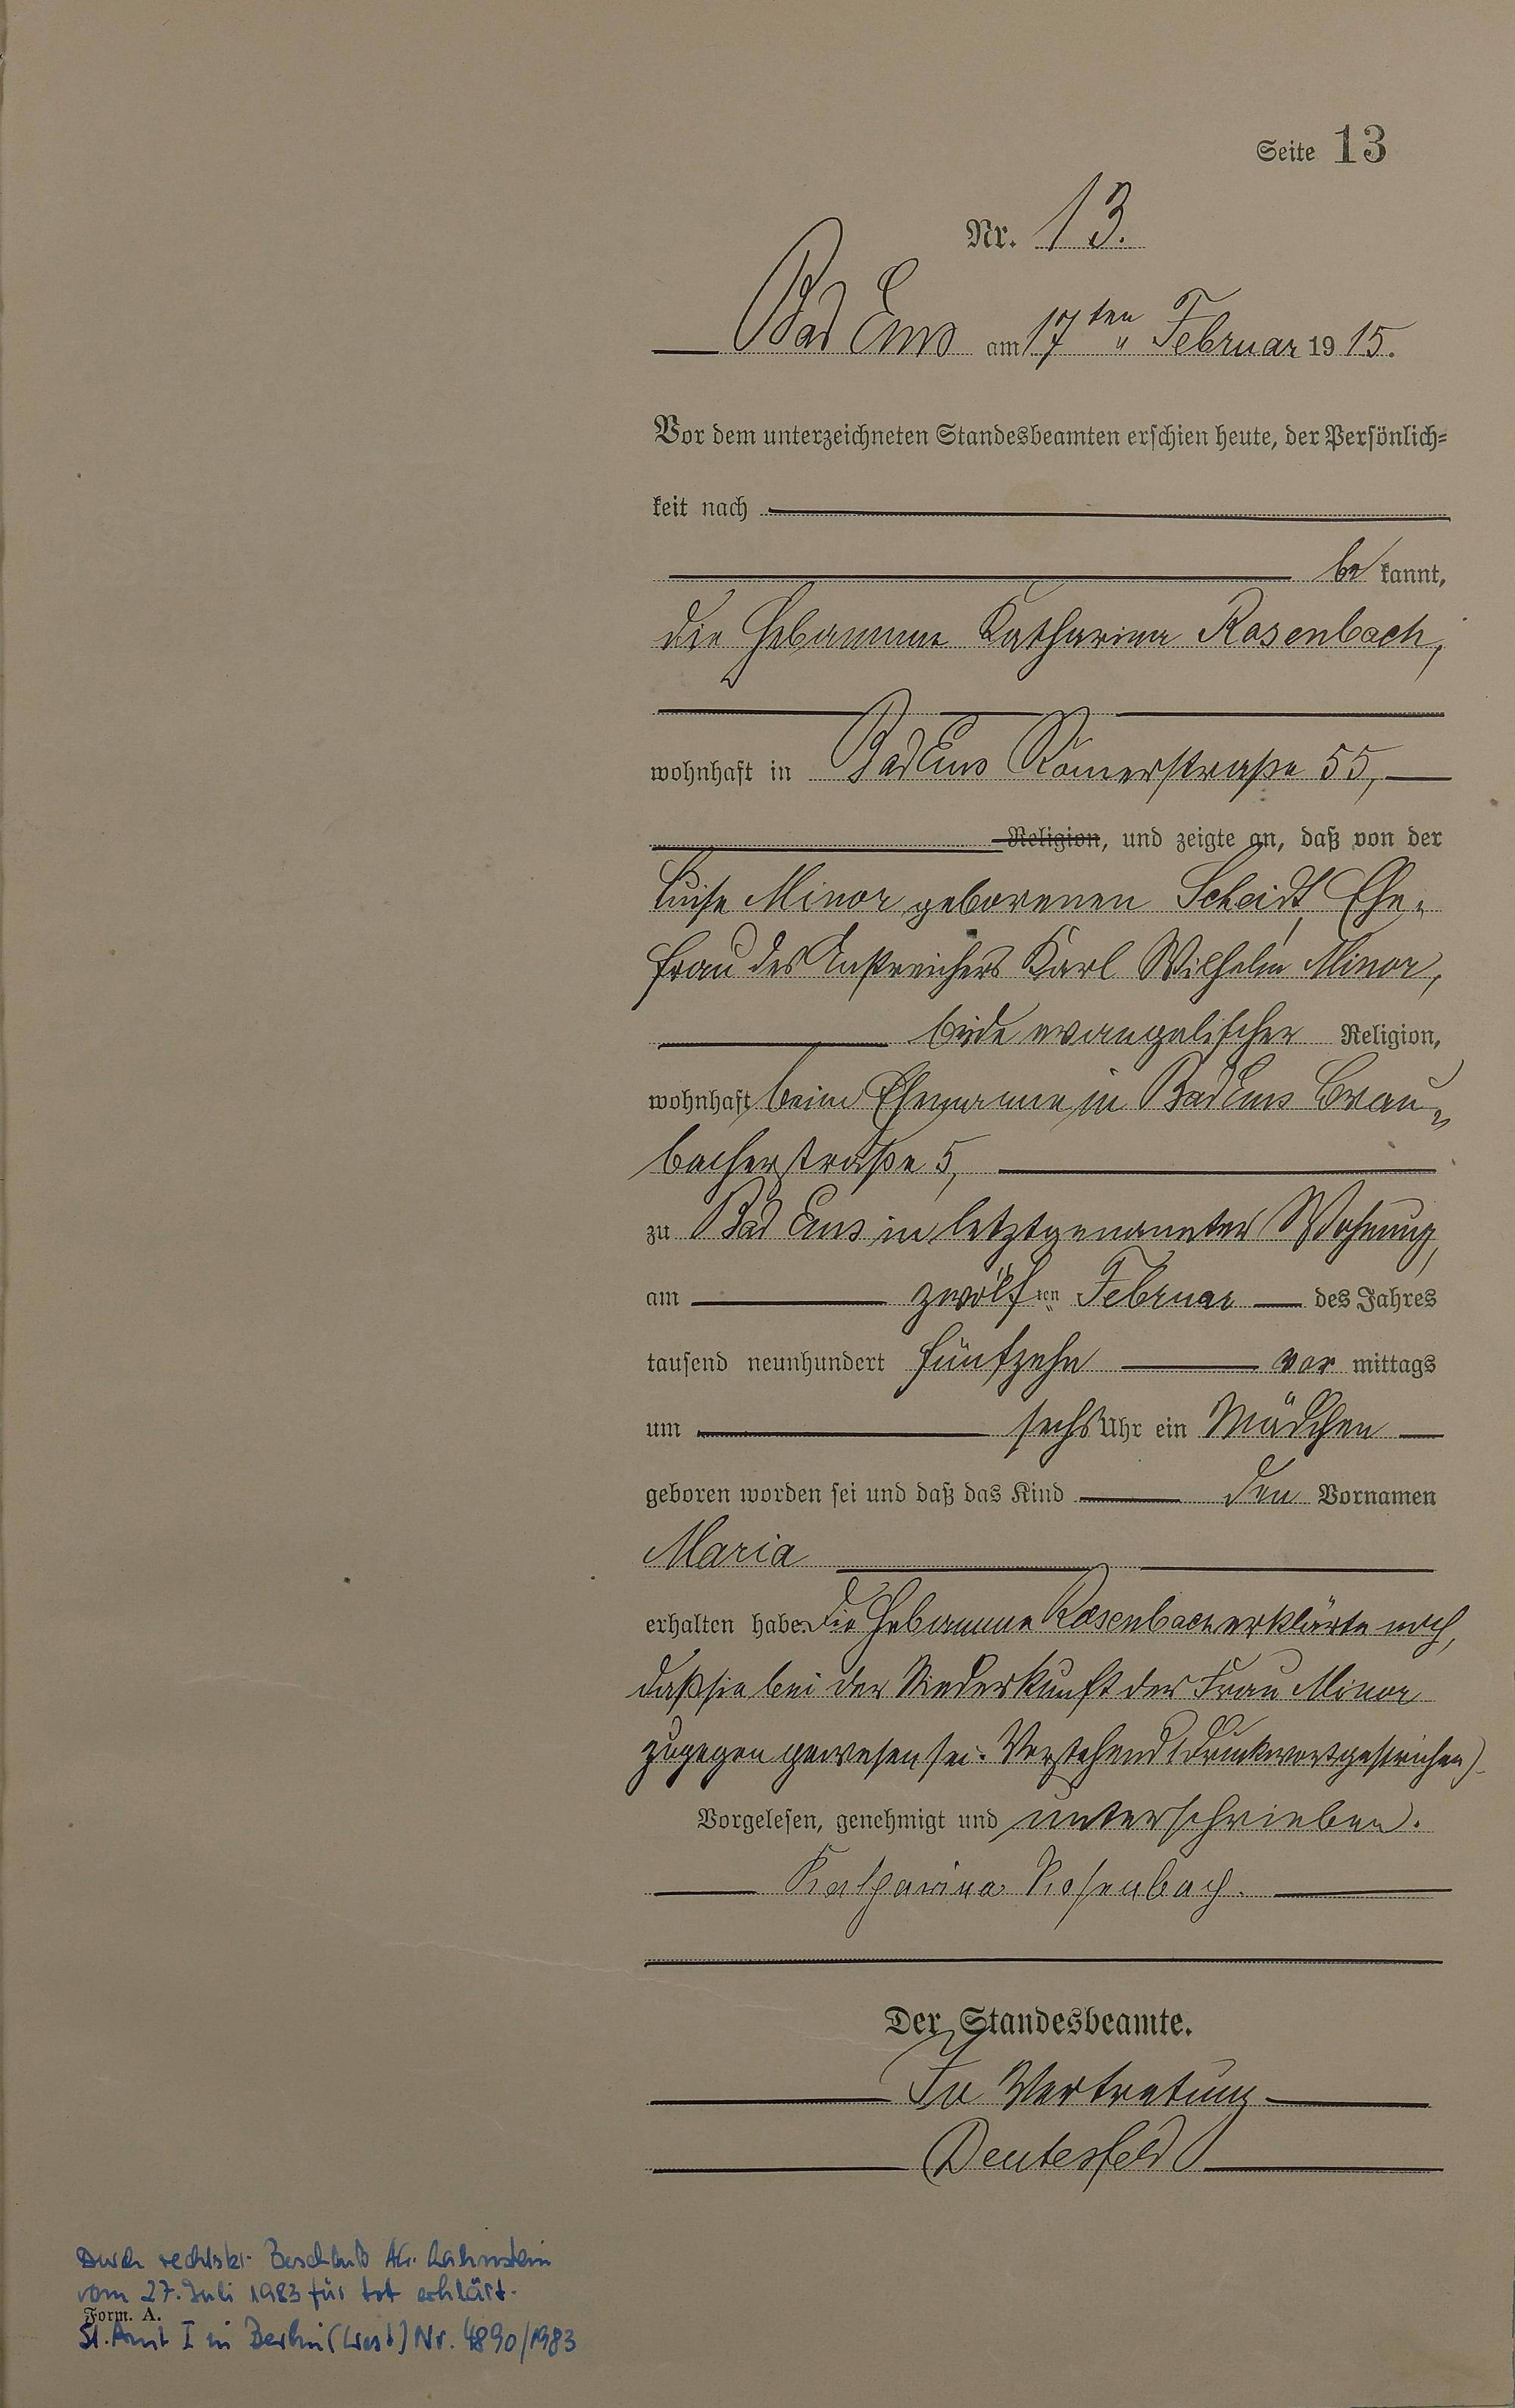 Seite 13
Nr. 13.
Bad Ems am 17ten Februar 1915.
Vor dem unterzeichneten Standesbeamten erschien heute, der Persönlich=
keit nach
be kannt,
die Hebamme Katharina Rosenbach,
wohnhaft in Bad Ems Römerstraße 55,
Religion, und zeigte an, daß von der
Luise Minor geborenen Scheidt, Ehe-
frau des Anstreichers Karl Wilhelm Minor,
beide evangelischer Religion,
wohnhaft beim Ehemanne in Bad Ems Brau-
bacherstraße 5,
zu Bad Ems in letztgenannter Wohnung,
am zwölften Februar des Jahres
tausend neunhundert fünfzehn vor mittags
um sechs Uhr ein Mädchen
geboren worden sei und daß das Kind den Vornamen
Maria
erhalten habe. Die Hebamme Rosenbach erklärte noch,
daß sie bei der Niederkunft der Frau Minor
zugegen gewesen sei. Vorstehend 1 Druckwort gestrichen)
Vorgelesen, genehmigt und unterschrieben.
Katharina Rosenbach.
Der Standesbeamte.
In Vertretung
Deutesfeld
Durch rechtskr. Beschluß AG. Lahnstein
vom 27. Juli 1983 für tot erklärt.
Form. A.
St. Amt I in Berlin (West) Nr. 4890/1983